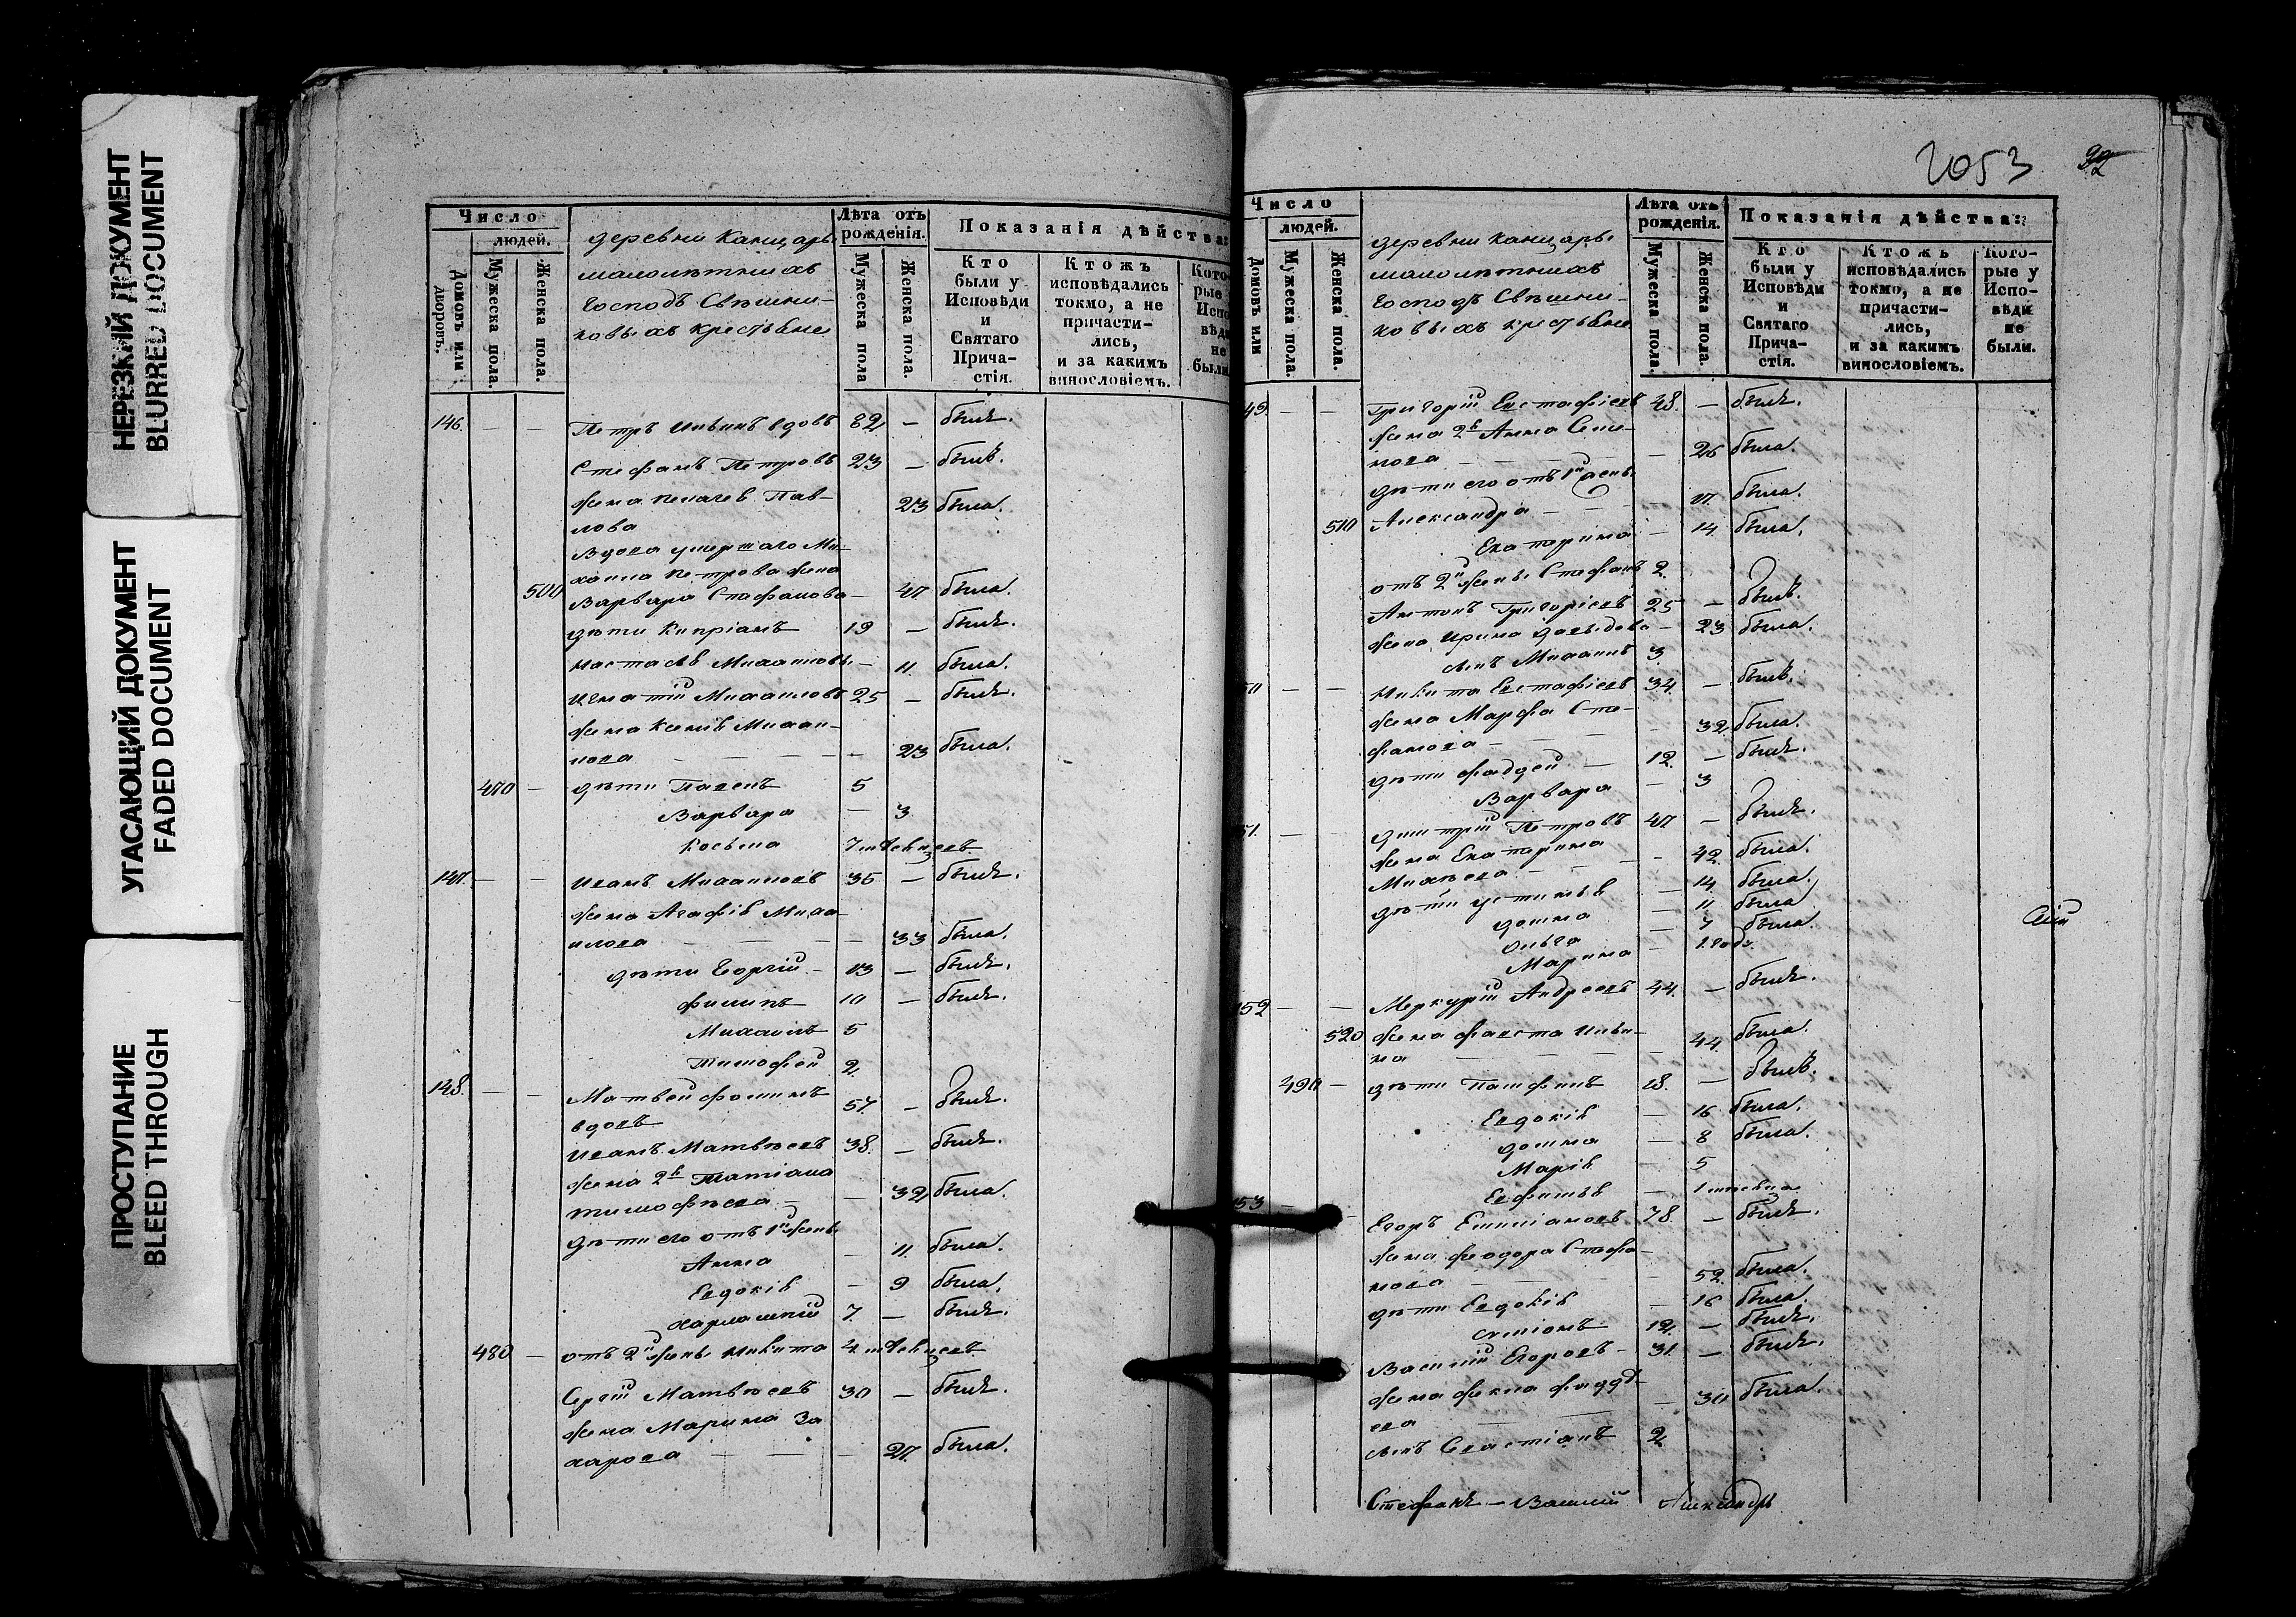 НЕРЕЗКИЙ ДОКУМЕНТ
BLURRED DOCUMENT
УГАСАЮЩИЙ ДОКУМЕНТ
FADED DOCUMENT
ПРОСТУПАНИЕ
BLEED THROUGH
Число
людей.
Домовъ или дворовъ.
Мужеска пола.
Женска пола.
деревни Канцарь
малолѣтныхъ
Господъ Свѣшни-
ковыхъ крестьяне
Лѣта отъ рожденія.
Мужеска пола
Женска пола.
Показанія дѣйства:
Кто были у Исповѣди и Святаго Прича-стія.
Ктожъ исповѣдались токмо, а не причасти-лись, и за какимъ винословіемъ.
Кото-рые Испо вѣди не были
146. — — Петръ Ильинъ вдовъ 82 — былъ.
Стефанъ Петровъ 23 — былъ.
жена Пелагея Пав-
лова 23 была.
Вдова умершаго Ми-
хаила Петрова жена
500 Варвара Стефанова — 47 была.
дѣти Кипріанъ 19 — былъ.
Настасья Михаилов. — 11. была.
Игнатій Михаиловъ 25 — былъ.
жена Ксенія Михаи-
лова — — — 23 была.
470 — дѣти Павелъ 5
Варвара — 3
Косьма 7 мѣсяцевъ
147. — — Иванъ Михаиловъ 35 — былъ.
жена Агафія Миха-
илова — — — 33 была.
дѣти Георгій — 13 — былъ.
Филипъ 10 — былъ.
Михаилъ 5
Тимофей 2
148. — — Матвей Фоминъ
вдовъ 57. — былъ.
Иванъ Матвѣевъ 38. — былъ.
жена 2я Татіана
Тимофѣева — — 32 была.
дѣти его отъ 1й жены
Анна — 11. была.
Евдокія — 9 была.
Харлампій 7. — былъ.
480 — отъ 2й жены Никита 4 мѣсяцевъ
Сергій Матвѣевъ 30 — былъ.
жена Марина За
харова — — — 27. была.
2053
Число
людей.
Домовъ или
Мужеска пола.
Женска пола.
деревни Канцарь
малолѣтныхъ
Господъ Свѣшни-
ковыхъ крестьяне
Лѣта отъ рожденія.
Мужеска пола.
Женска пола.
Показанія дѣйства:
Кто были у Исповѣди и Святаго Прича-стія.
Ктожъ исповѣдались токмо, а не причасти-лись, и за какимъ винословіемъ.
Кото-рые у Испо-вѣди не были.
49 — — Григорій Евстафіевъ 48. — былъ.
жена 2я Анна Семе-
нова — — — 26 была.
дѣти его отъ 1й жены
510 Александра — — 17. была.
Екатерина — 14. была.
отъ 2й жены Стефанъ 2.
Антонъ Григорьевъ 25 — былъ.
жена Ирина Давыдова — 23 была.
сынъ Михаилъ 3.
50 — — Никита Евстафіевъ 34. — былъ.
жена Марфа Сте-
фанова — — — 32 была.
дѣти Фаддей — 12. — былъ.
Варвара — 3
51. — Дмитрій Петровъ 47 — былъ.
жена Екатерина
Михѣева — — — 42. была.
дѣти Устинья — 14. была.
Домна — 11 была
Ольга — 7 была.
Марина — 1 годъ.
152 — — Меркурій Андреевъ 44. — былъ.
520 жена Фавста Ильи-
на — — 44. была.
490 — дѣти Памфилъ 18. — былъ.
Евдокія — 16 была.
Домна — 8 была.
Марія — 5
Евфимья — 1 мѣсяца
53 — — Егоръ Емиліановъ 78. — былъ.
жена Феодора Стефа-
нова — — — 52. была.
дѣти Евдокія — 16 была.
Симіонъ 12. — былъ.
Василій Егоровъ — 31. — былъ.
жена Фекла Фадде
ева — — — 30 была.
сынъ Севастіанъ 2
Стефанъ — Василій Александръ